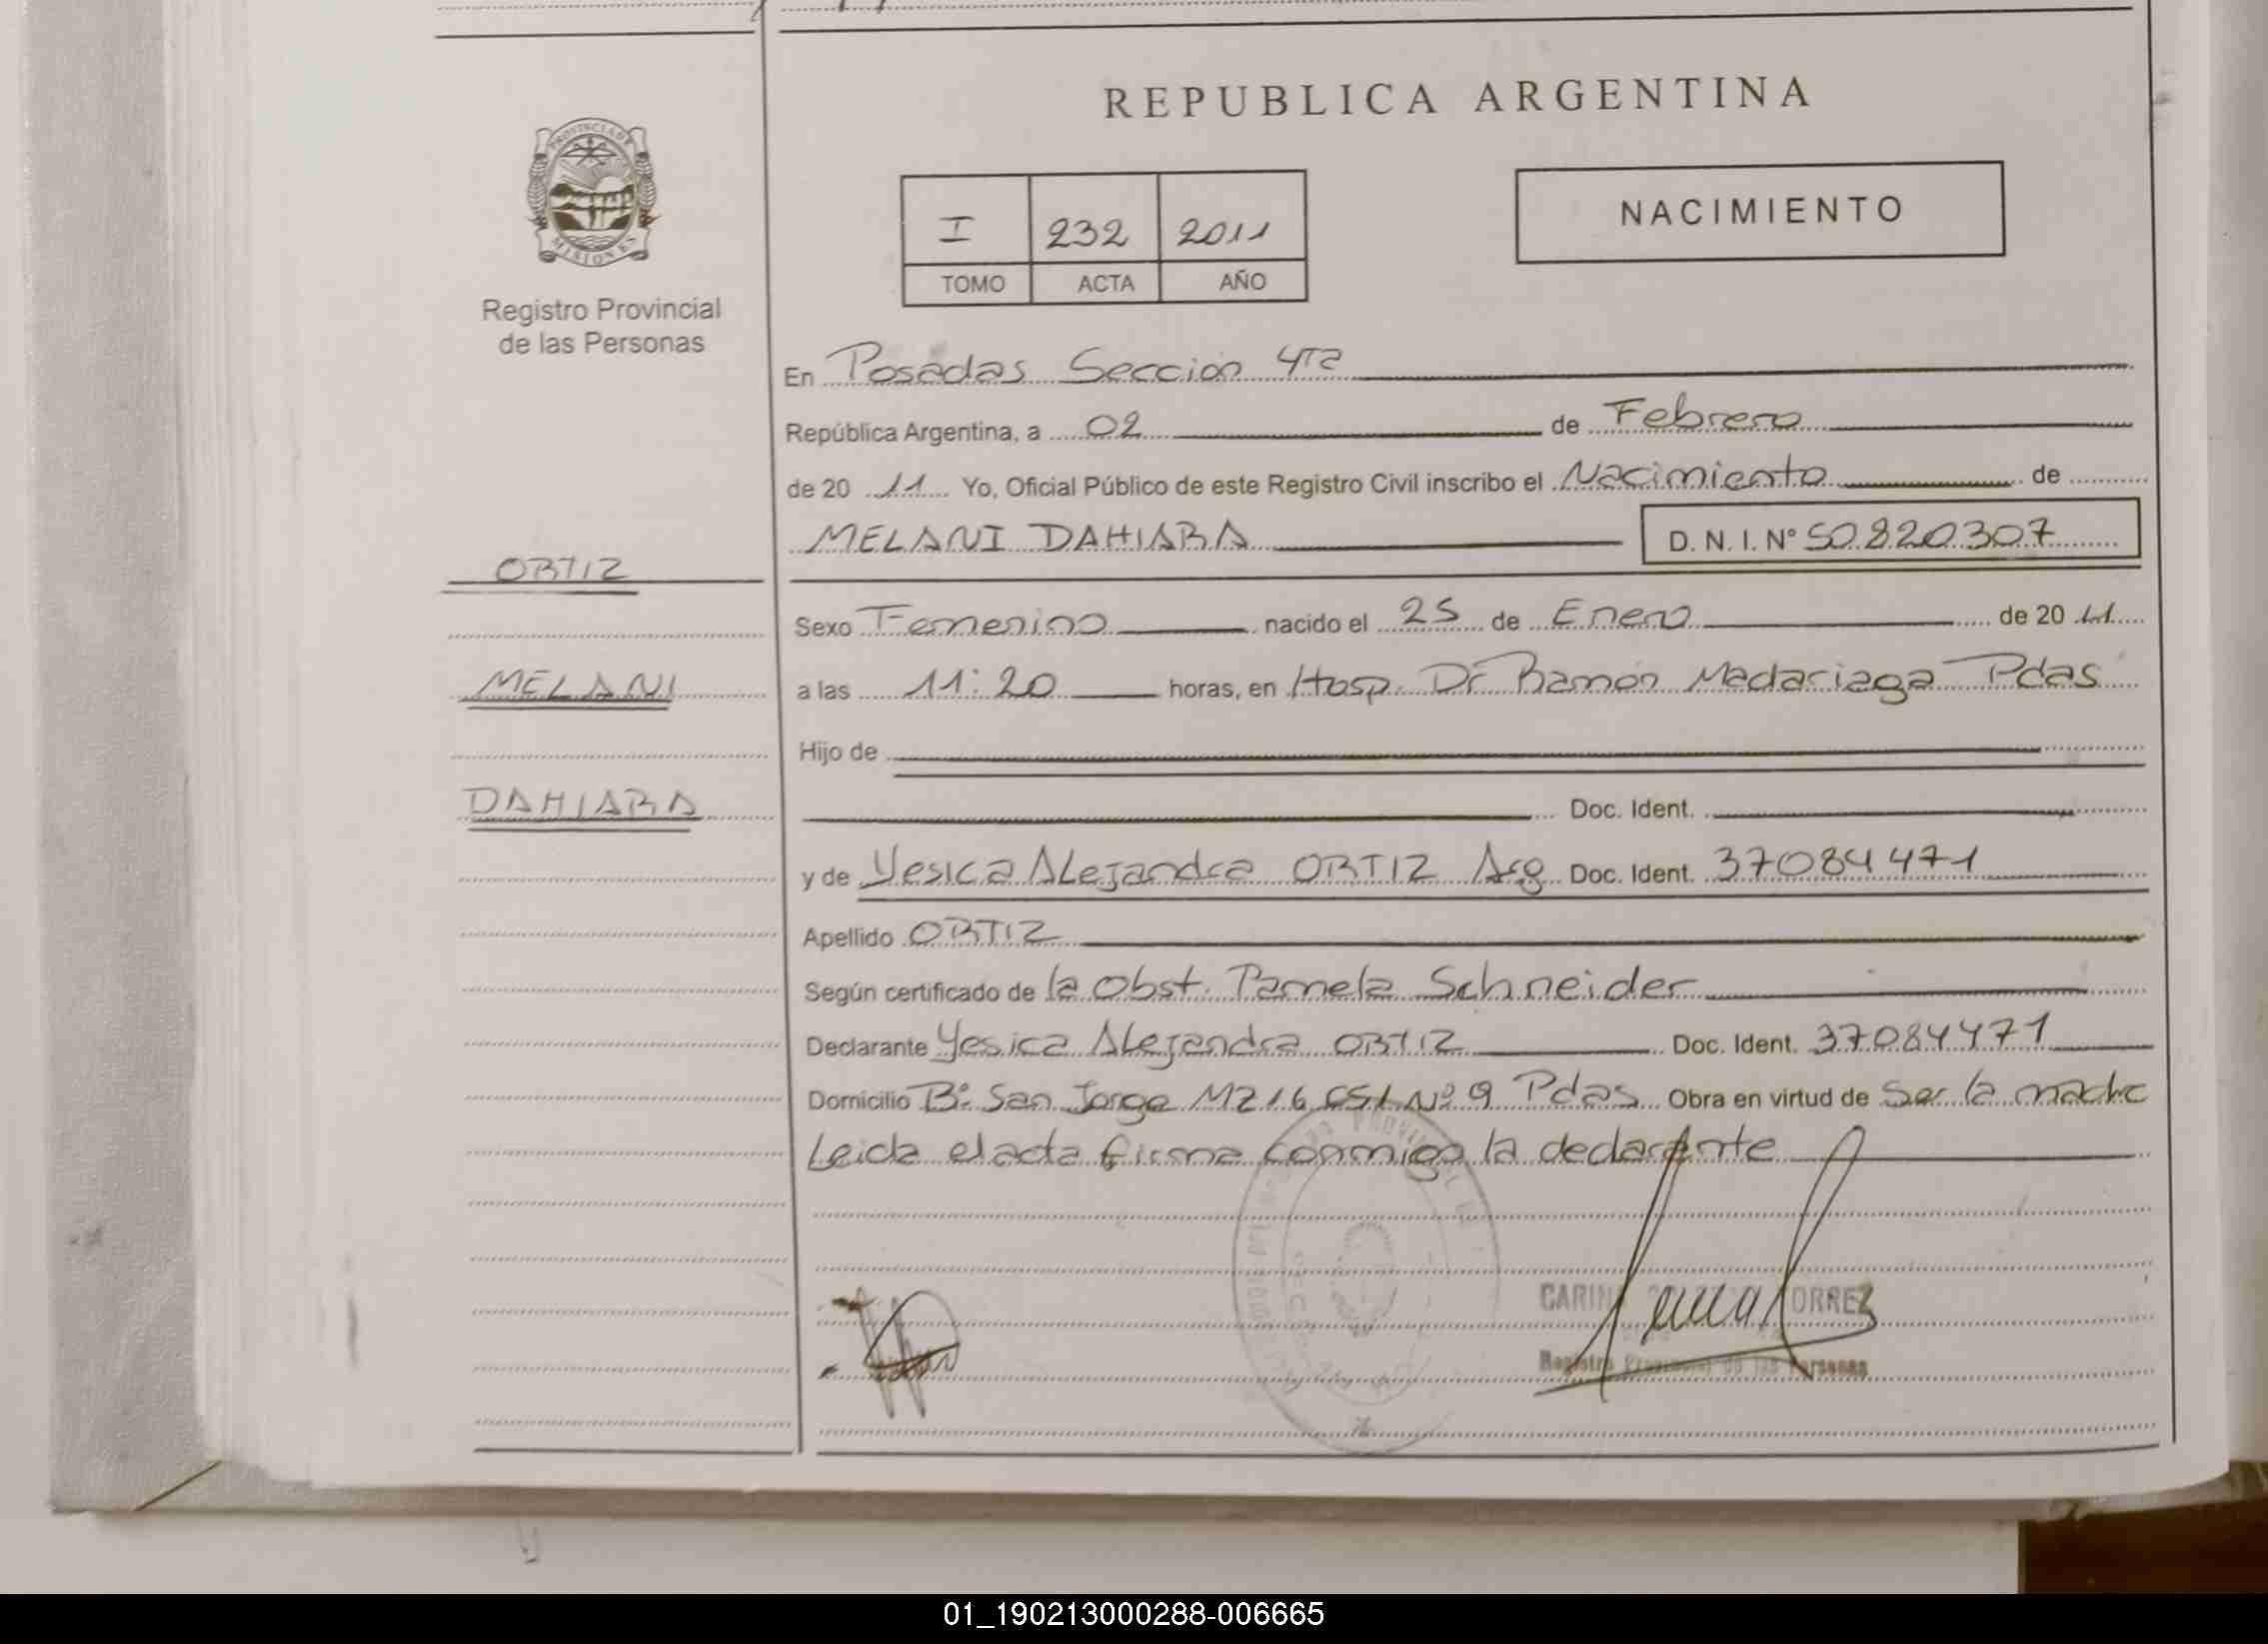 REPUBLICA ARGENTINA
PROVINCIA DE MISIONES
Registro Provincial
de las Personas
I 232 2011
TOMO ACTA AÑO
NACIMIENTO
En Posadas Sección 4ta
República Argentina, a 02 de Febrero
de 20 11 Yo, Oficial Público de este Registro Civil inscribo el Nacimiento de
MELANI DAHIARA D. N. I. Nº 50820307
ORTIZ
Sexo Femenino nacido el 25 de Enero de 20 11
MELANI
a las 11:20 horas, en Hosp. Dr Ramón Madariaga Pdas
Hijo de
DAHIARA
Doc. Ident.
y de Yesica Alejandra ORTIZ Arg Doc. Ident. 37084471
Apellido ORTIZ
Según certificado de la Obst. Pamela Schneider
Declarante Yesica Alejandra ORTIZ Doc. Ident. 37084471
Domicilio Bº San Jorge MZ 16 CS1 Nº 9 Pdas Obra en virtud de Ser la madre
Leida el acta firma conmigo la declarante
Registro Provincial de las Personas
01_190213000288-006665